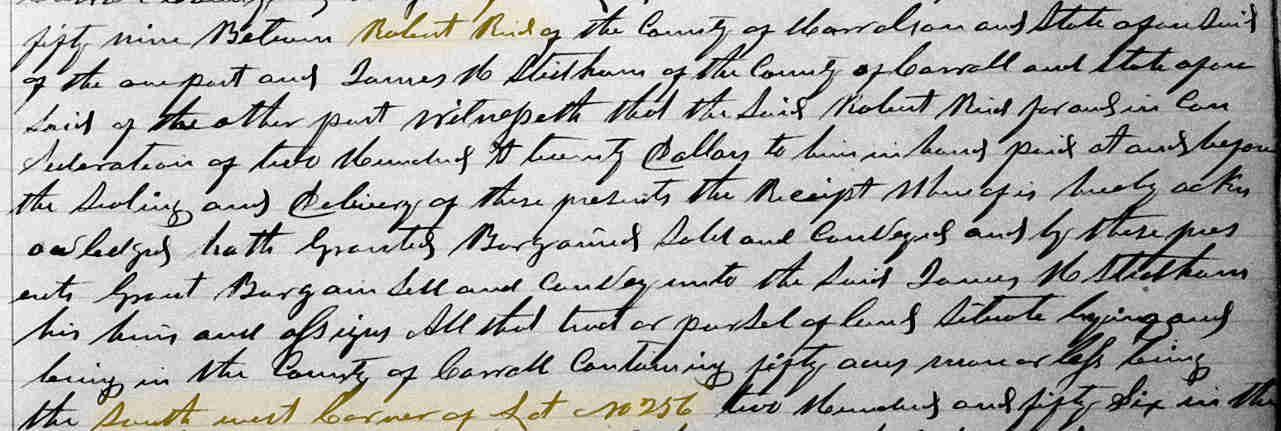 fifty nine Between Robert Reid of the County of Harralson and State afore Said
of the one part and James H Stidham of the County of Carroll and State afore
Said of the other part witnesseth that the Said Robert Reid for and in Con
sideration of two Hundred & twenty Dollars to him in hand paid at and before
the Sealing and Delivery of these presents the Receipt Whereof is hereby ackn
owledged hath Granted Bargained Sold and Conveyed and by these pres
ents Grant Bargain Sell and Convey unto the Said James H Stidham
his heirs and assigns All that tract or parsel of land Situate lying and
being in the County of Carroll Containing fifty acres more or less being
the South west Corner of Lot No 256 two Hundred and fifty Six in the